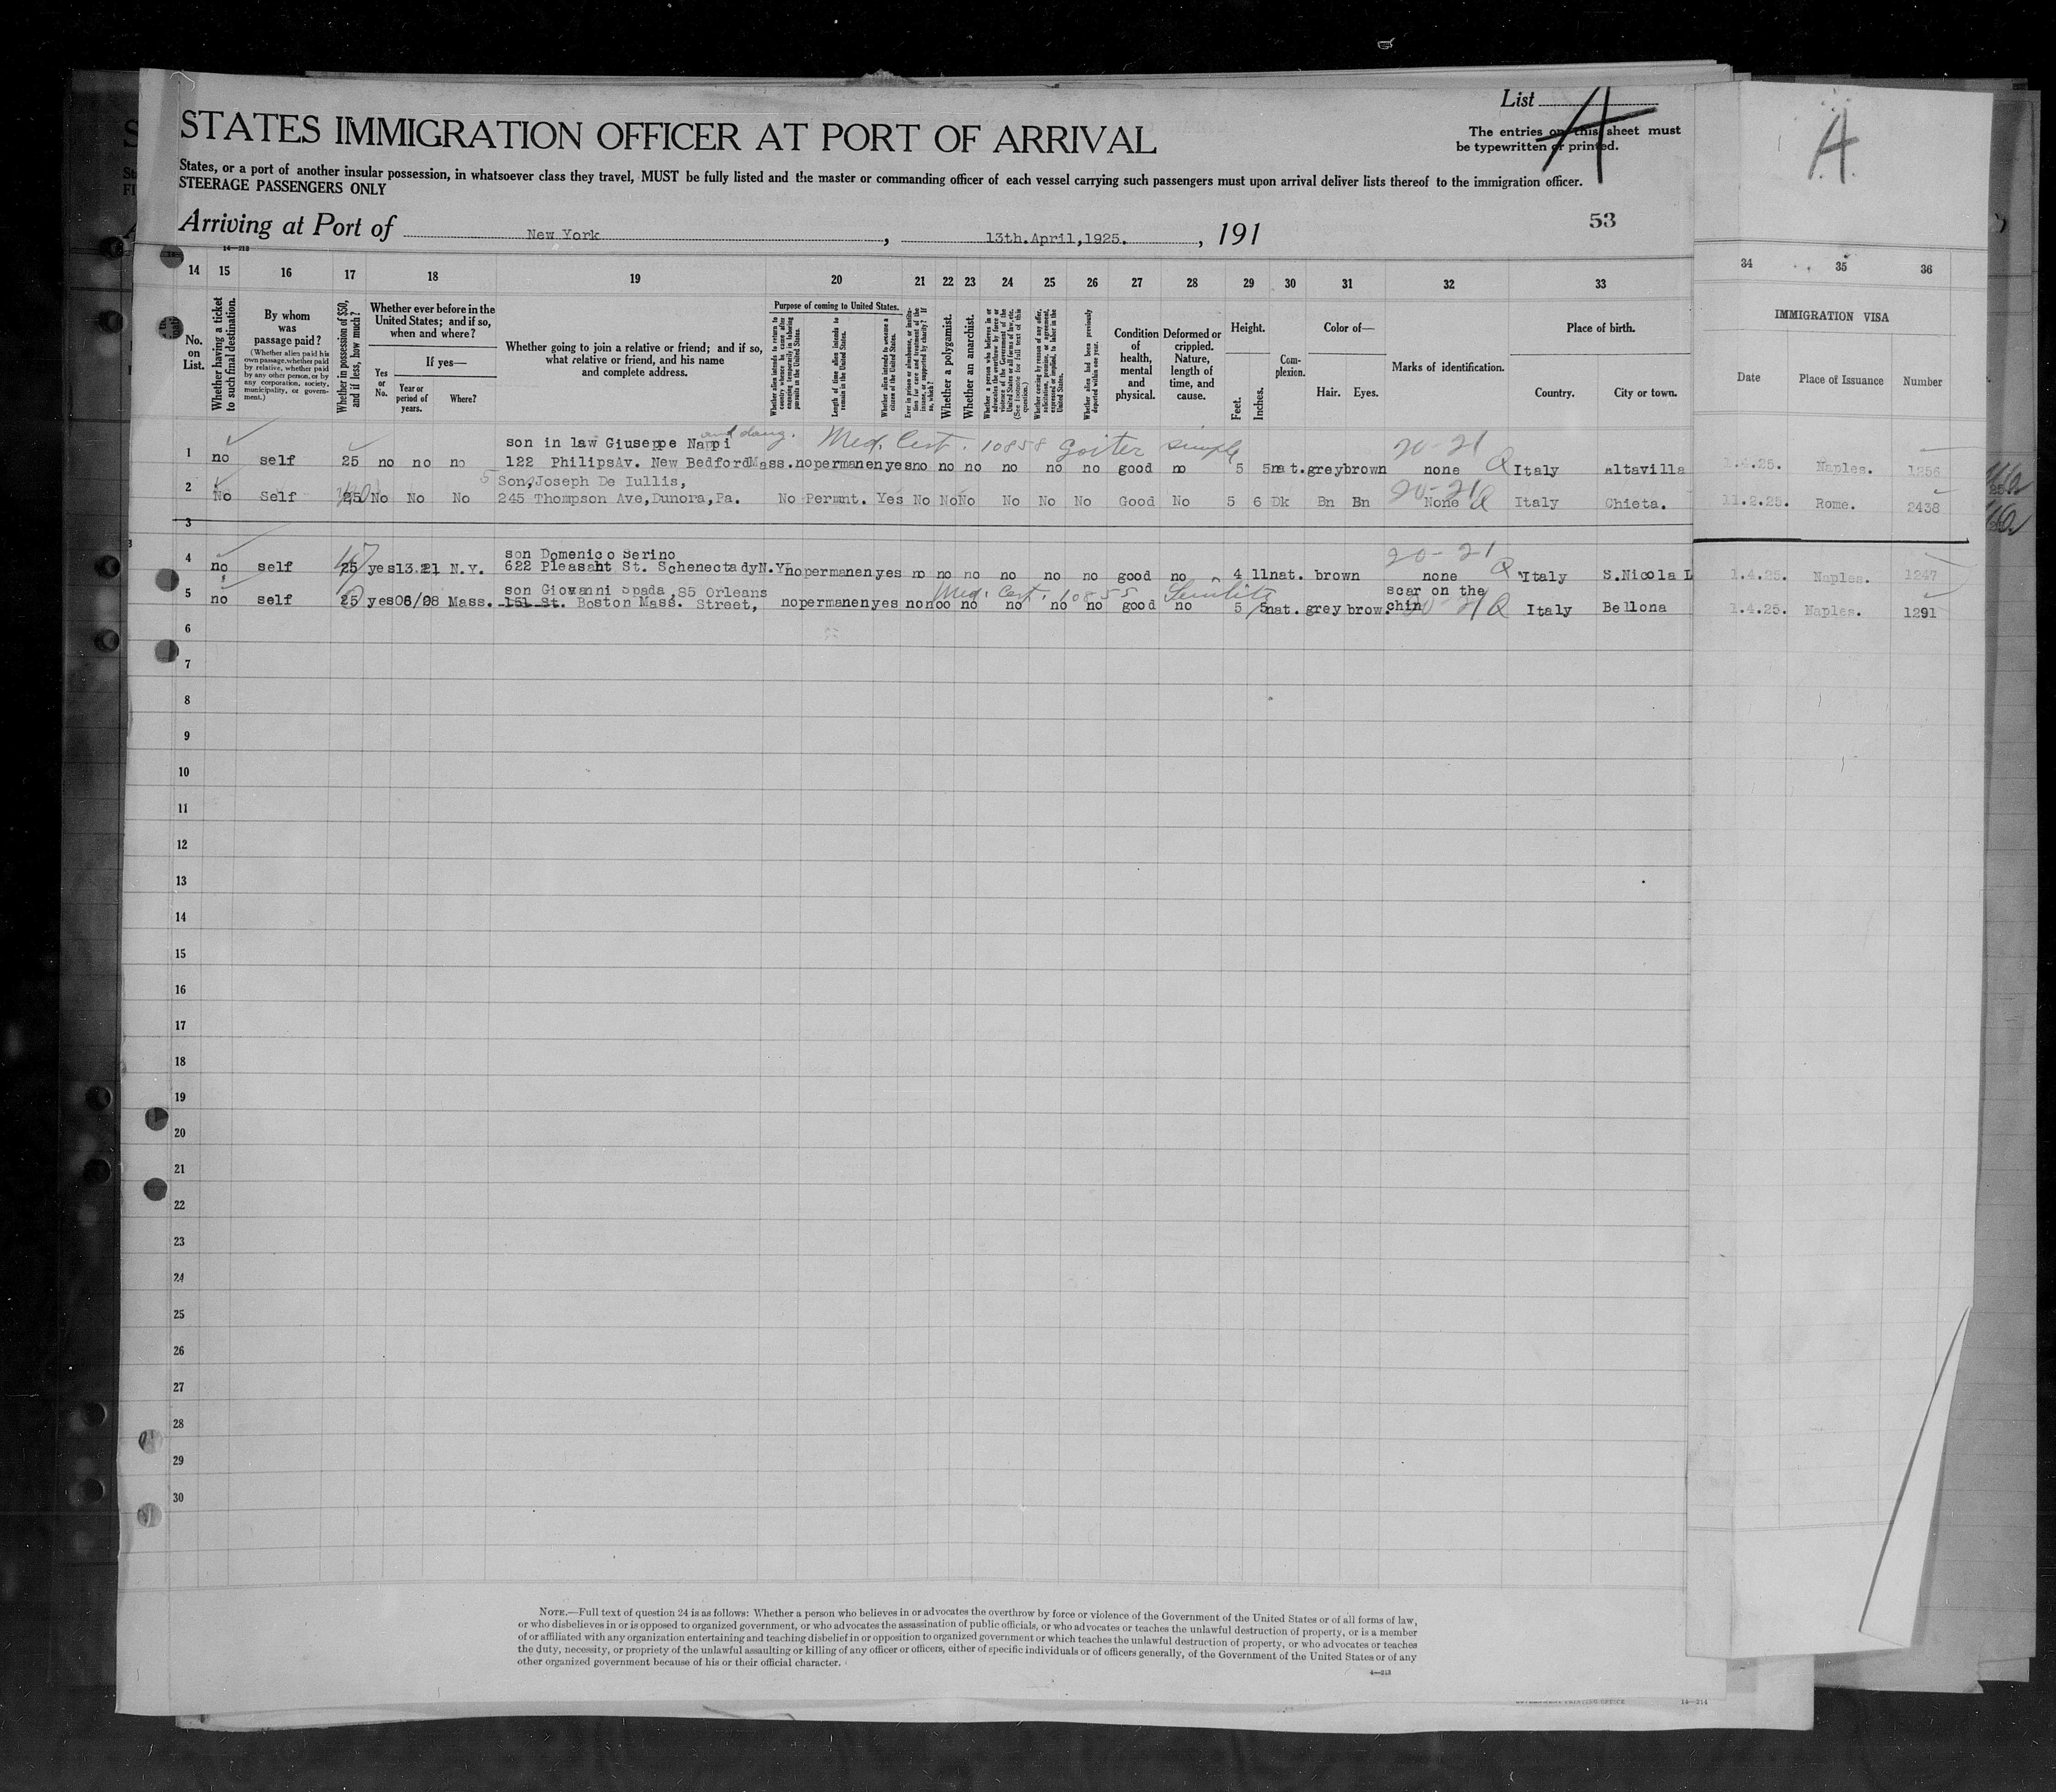 List
A
A
The entries on this sheet must
be typewritten or printed.
STATES IMMIGRATION OFFICER AT PORT OF ARRIVAL
States, or a port of another insular possession, in whatsoever class they travel, MUST be fully listed and the master or commanding officer of each vessel carrying such passengers must upon arrival deliver lists thereof to the immigration officer.
STEERAGE PASSENGERS ONLY
53
Arriving at Port of New York, 13th.April,1925., 191
14—213
14 15 16 17 18 19 20 21 22 23 24 25 26 27 28 29 30 31 32 33 34 35 36
No. on List.
Whether having a ticket to such final destination.
By whom was passage paid?
(Whether alien paid his own passage, whether paid by relative, whether paid by any other person, or by any corporation, society, municipality, or government.)
Whether in possession of $50, and if less, how much?
Whether ever before in the United States; and if so, when and where?
Yes or No.
If yes—
Year or period of years.
Where?
Whether going to join a relative or friend; and if so, what relative or friend, and his name and complete address.
Purpose of coming to United States.
Whether alien intends to return to country whence he came after engaging temporarily in laboring pursuits in the United States.
Length of time alien intends to remain in the United States.
Whether alien intends to become a citizen of the United States.
Ever in prison or almshouse, or institution for care and treatment of the insane, or supported by charity? If so, which?
Whether a polygamist.
Whether an anarchist.
Whether a person who believes in or advocates the overthrow by force or violence of the Government of the United States or all forms of law, etc. (See footnote for full text of this question.)
Whether coming by reason of any offer, solicitation, promise, or agreement, expressed or implied, to labor in the United States.
Whether alien had been previously deported within one year.
Condition of health, mental and physical.
Deformed or crippled. Nature, length of time, and cause.
Height.
Feet.
Inches.
Complexion.
Color of—
Hair. Eyes.
Marks of identification.
Place of birth.
Country. City or town.
IMMIGRATION VISA
Date Place of Issuance Number
son in law Giuseppe Nappi and daug. Med. Cert. 10858 goiter simple 20-21
1 no self 25 no no no 122 PhilipsAv. New BedfordMass. no permanen yes no no no no no no good no 5 5 nat. grey brown none Q Italy Altavilla 1.4.25. Naples. 1256
Son,Joseph De Iullis, 20-21
2 No Self 25 No No No 245 Thompson Ave,Dunora,Pa. No Permnt. Yes No No No No No No Good No 5 6 Dk Bn Bn None Q Italy Chieta. 11.2.25. Rome. 2438
3
son Domenico Serino 20-21
4 no self 25 yes 13.21 N.Y. 622 Pleasant St. Schenectady N.Y. no permanen yes no no no no no no good no 4 11 nat. brown none Q Italy S.Nicola L 1.4.25. Naples. 1247
son Giovanni Spada,85 Orleans Med. Cert. 10855 Senility scar on the
5 no self 25 yes 06/08 Mass. 151 St. Boston Mass. Street, no permanen yes no no no no no no good no 5 5 nat. grey brow. chin 20-21 Q Italy Bellona 1.4.25. Naples. 1291
6
7
8
9
10
11
12
13
14
15
16
17
18
19
20
21
22
23
24
25
26
27
28
29
30
NOTE.—Full text of question 24 is as follows: Whether a person who believes in or advocates the overthrow by force or violence of the Government of the United States or of all forms of law,
or who disbelieves in or is opposed to organized government, or who advocates the assassination of public officials, or who advocates or teaches the unlawful destruction of property, or is a member
of or affiliated with any organization entertaining and teaching disbelief in or opposition to organized government or which teaches the unlawful destruction of property, or who advocates or teaches
the duty, necessity, or propriety of the unlawful assaulting or killing of any officer or officers, either of specific individuals or of officers generally, of the Government of the United States or of any
other organized government because of his or their official character.
4—213
GOVERNMENT PRINTING OFFICE
14—214